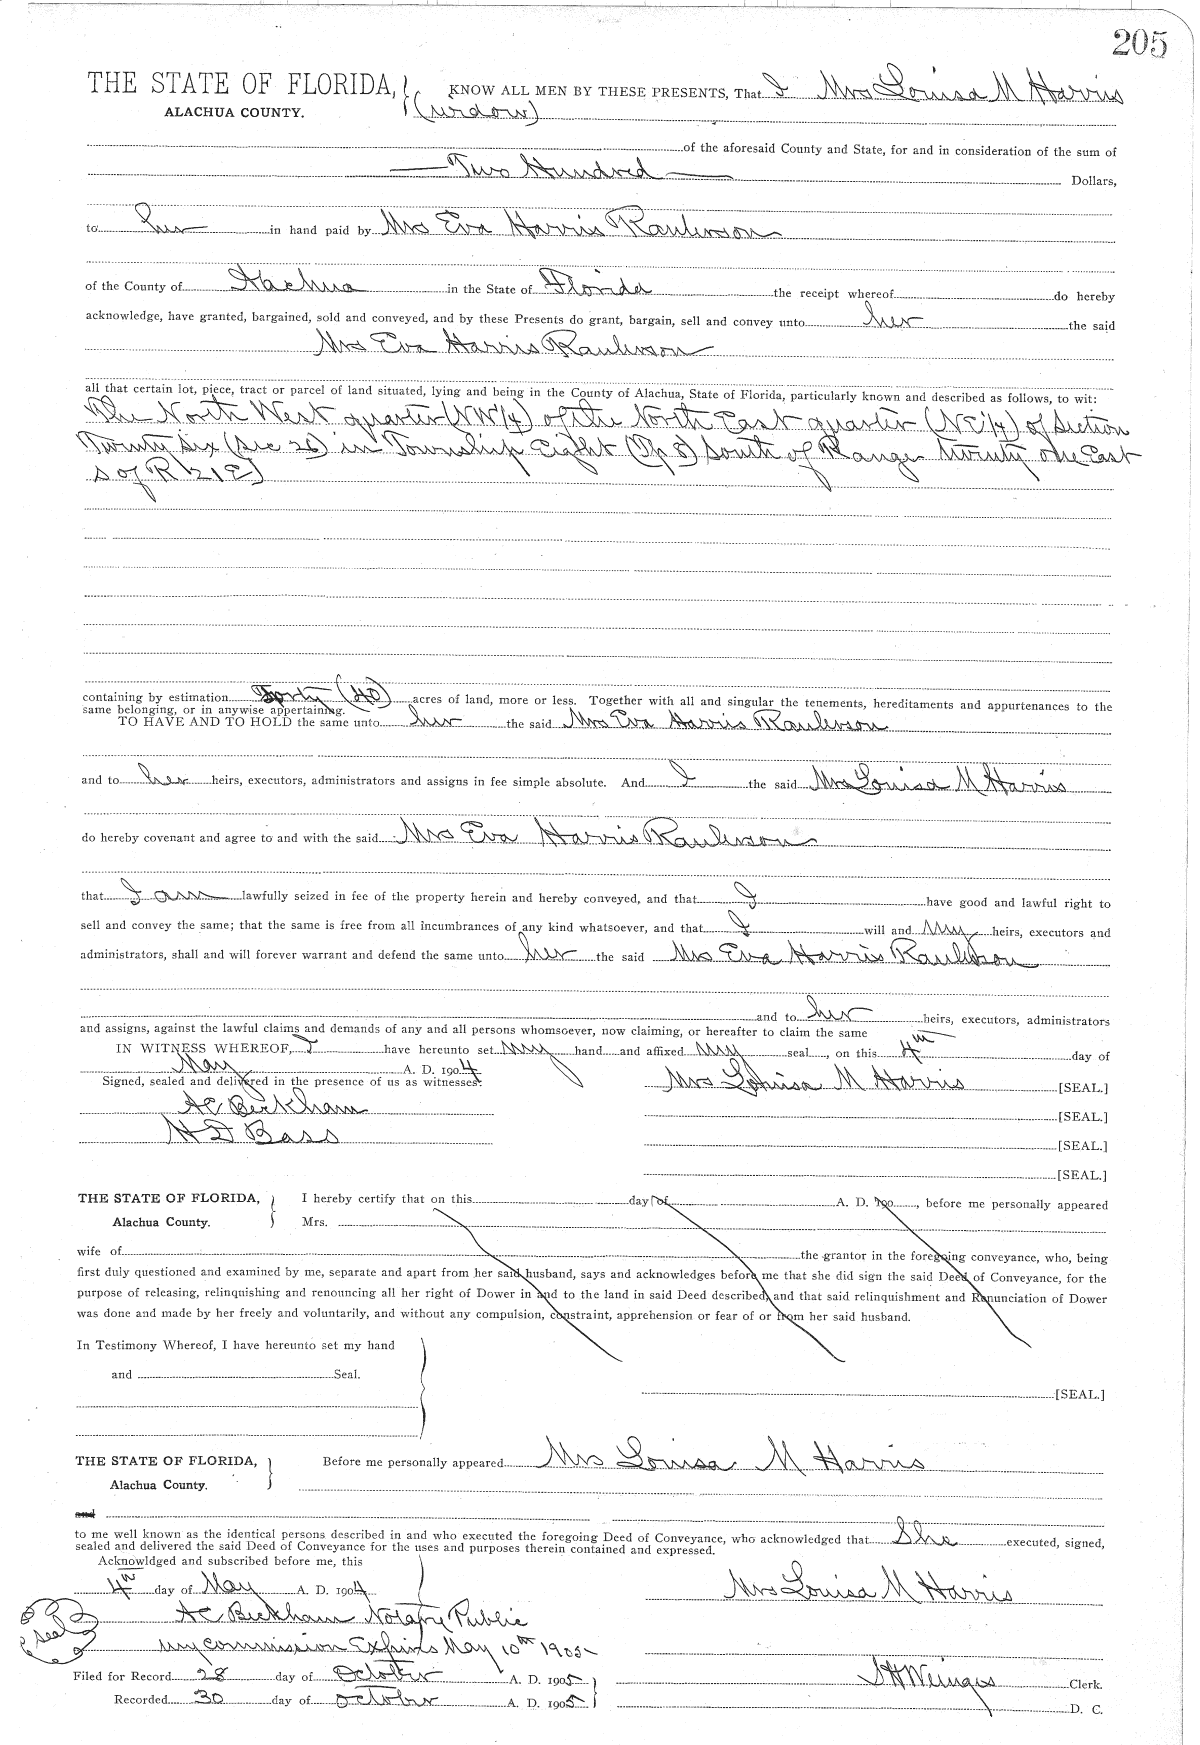 205
THE STATE OF FLORIDA, KNOW ALL MEN BY THESE PRESENTS, That I Mrs Louisa M Harris
ALACHUA COUNTY. (widow)
of the aforesaid County and State, for and in consideration of the sum of
Two Hundred Dollars,
to her in hand paid by Mrs Eva Harris Raulerson
of the County of Alachua in the State of Florida the receipt whereof do hereby
acknowledge, have granted, bargained, sold and conveyed, and by these Presents do grant, bargain, sell and convey unto her the said
Mrs Eva Harris Raulerson
all that certain lot, piece, tract or parcel of land situated, lying and being in the County of Alachua, State of Florida, particularly known and described as follows, to wit:
The North West quarter (NW1/4) of the North East quarter (NE1/4) of Section
Twenty six (Sec 26) in Township Eight (Tp 8) South of Range twenty one East
S of R 21 E)
containing by estimation Forty (40) acres of land, more or less. Together with all and singular the tenements, hereditaments and appurtenances to the
same belonging, or in anywise appertaining.
TO HAVE AND TO HOLD the same unto her the said Mrs Eva Harris Raulerson
and to her heirs, executors, administrators and assigns in fee simple absolute. And I the said Mrs Louisa M Harris
do hereby covenant and agree to and with the said Mrs Eva Harris Raulerson
that I am lawfully seized in fee of the property herein and hereby conveyed, and that I have good and lawful right to
sell and convey the same; that the same is free from all incumbrances of any kind whatsoever, and that I will and my heirs, executors and
administrators, shall and will forever warrant and defend the same unto her the said Mrs Eva Harris Raulerson
and to her heirs, executors, administrators
and assigns, against the lawful claims and demands of any and all persons whomsoever, now claiming, or hereafter to claim the same
IN WITNESS WHEREOF, I have hereunto set my hand and affixed my seal, on this 4th day of
May A. D. 1904
Signed, sealed and delivered in the presence of us as witnesses: Mrs Louisa M Harris [SEAL.]
A C Beckham [SEAL.]
H D Bass [SEAL.]
[SEAL.]
THE STATE OF FLORIDA, I hereby certify that on this day of A. D. 190, before me personally appeared
Alachua County. Mrs.
wife of the grantor in the foregoing conveyance, who, being
first duly questioned and examined by me, separate and apart from her said husband, says and acknowledges before me that she did sign the said Deed of Conveyance, for the
purpose of releasing, relinquishing and renouncing all her right of Dower in and to the land in said Deed described, and that said relinquishment and Renunciation of Dower
was done and made by her freely and voluntarily, and without any compulsion, constraint, apprehension or fear of or from her said husband.
In Testimony Whereof, I have hereunto set my hand
and Seal.
[SEAL.]
THE STATE OF FLORIDA, Before me personally appeared Mrs Louisa M Harris
Alachua County.
and
to me well known as the identical persons described in and who executed the foregoing Deed of Conveyance, who acknowledged that She executed, signed,
sealed and delivered the said Deed of Conveyance for the uses and purposes therein contained and expressed.
Acknowldged and subscribed before me, this
4th day of May A. D. 1904 Mrs Louisa M Harris
A C Beckham Notary Public
Seal my commission Expires May 10th 1905
Filed for Record 28 day of October A. D. 1905 S H Wienges Clerk.
Recorded 30 day of October A. D. 1905 D. C.